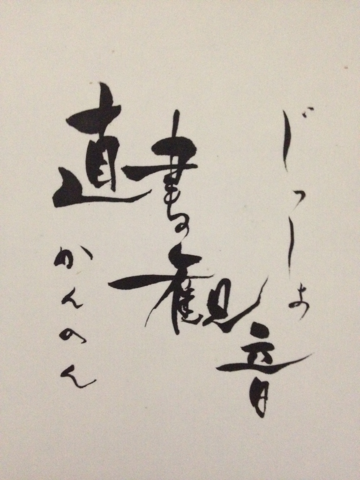 じっしょ
直書観音
かんのん